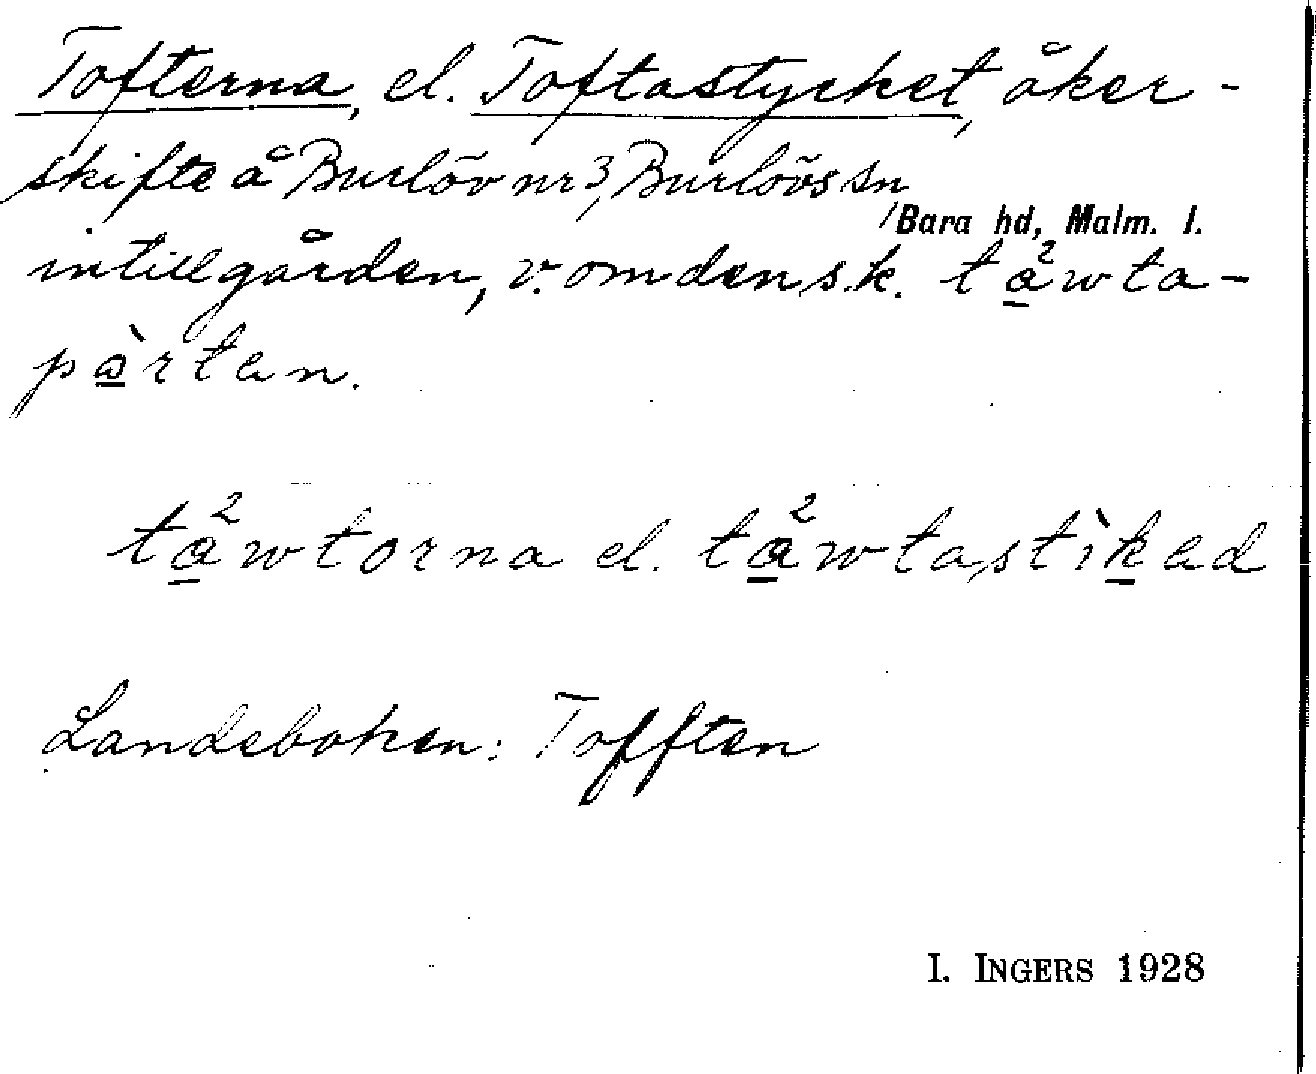 Tofterna, el. Toftastycket, åker-
skifte å Burlöv nr 3, Burlövs sn
/Bara hd, Malm. l.
intill gården, v. om den s.k. tå²wta-
pàrten.
tå²wtorna el. tå²wtastìked
Landeboken: Tofften
I. INGERS 1928